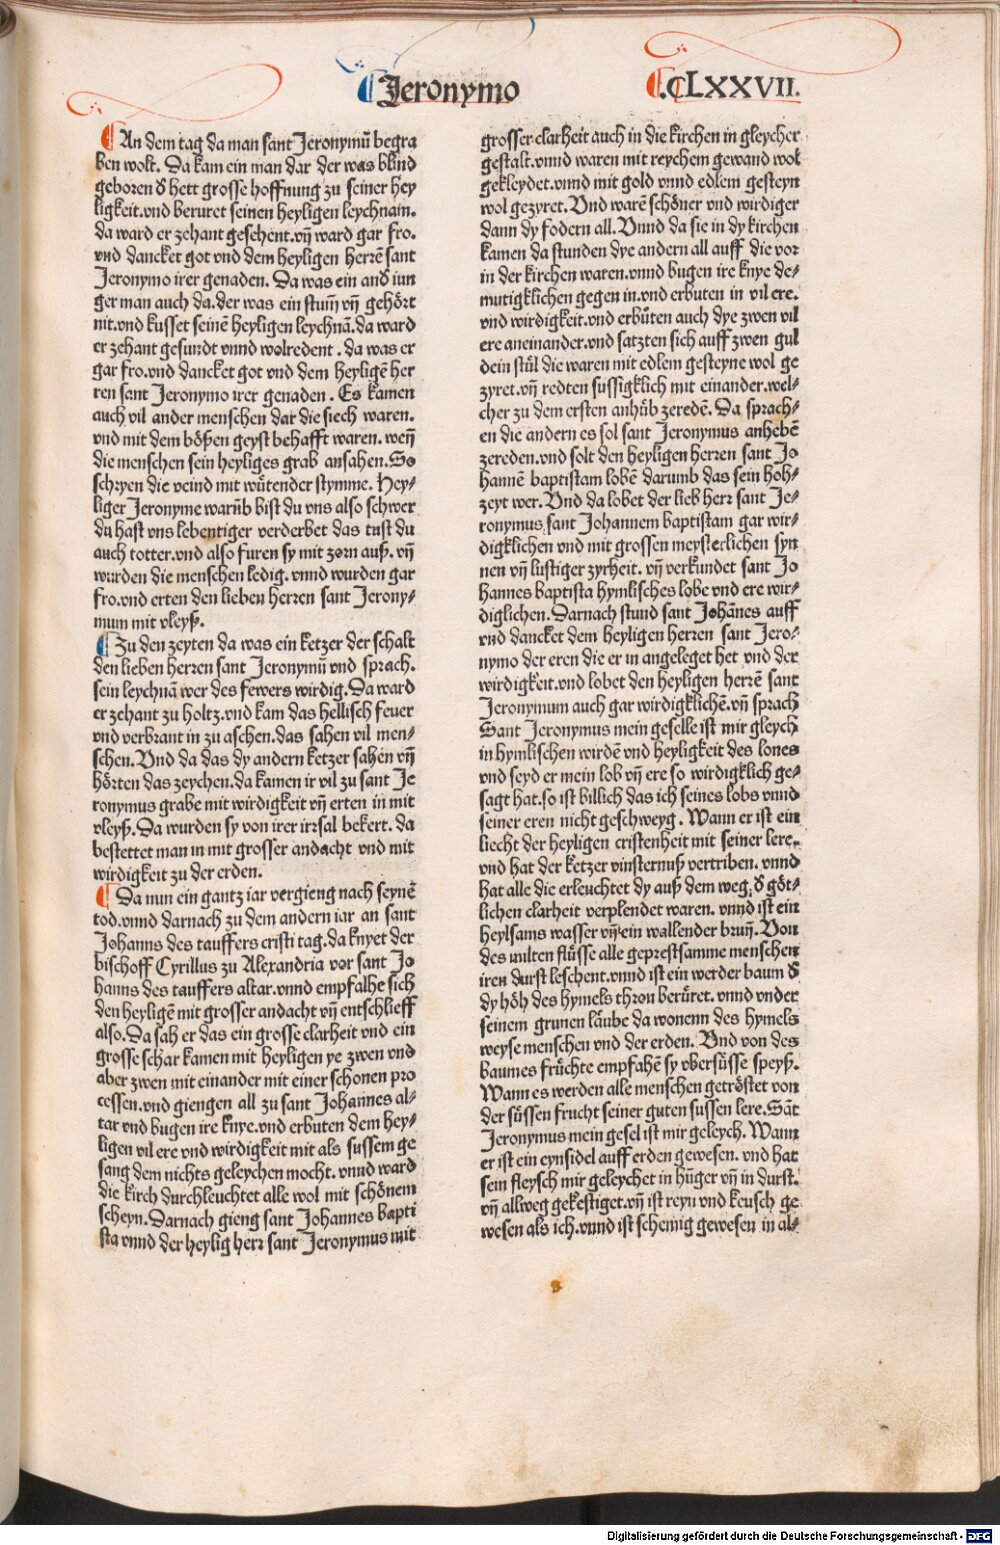 Jeronymo
.CLXXVII.
An dem tag da man sant Jeronymū begra
ben wolt. Da kam ein man dar der was blind
geboren đ hett grosse hoffnung zu seiner hey
ligkeit.vnd beruret seinen heyligen leychnam.
da ward er zehant gesehent.vn̄ ward gar fro.
vnd dancket got vnd dem heyligen herrē sant
Jeronymo irer genaden. Da was ein anđ iun
ger man auch da.der was ein stum̄ vn̄ gehört
nit.vnd kusset seinē heyligen leychnā.da ward
er zehant gesundt vnnd wolredent . da was er
gar fro.vnd dancket got vnd dem heyligē her
ren sant Jeronymo irer genaden . Es kamen
auch vil ander menschen dar die siech waren.
vnd mit dem bößen geyst behafft waren. wen̄
die menschen sein heyliges grab ansahen.So
schryen die veind mit wütender stymme. Hey-
liger Jeronyme warūb bist du vns also schwer
du hast vns lebentiger verderbet das tust du
auch totter.vnd also furen sy mit zorn auß. vn̄
wurden die menschen ledig. vnnd wurden gar
fro.vnd erten den lieben herren sant Jerony-
mum mit vleyß.
Zu den zeyten da was ein ketzer der schalt
den lieben herren sant Jeronymū vnd sprach.
sein leychnā wer des fewers wirdig.Da ward
er zehant zu holtz.vnd kam das hellisch feuer
vnd verbrant in zu aschen.das sahen vil men-
schen.Vnd da das dy andern ketzer sahen vn̄
hörten das zeychen.da kamen ir vil zu sant Je
ronymus grabe mit wirdigkeit vn̄ erten in mit
vleyß.Da wurden sy von irer irrsal bekert. da
bestettet man in mit grosser andacht vnd mit
wirdigkeit zu der erden.
Da nun ein gantz jar vergieng nach seynē
tod.vnnd darnach zu dem andern iar an sant
Johanns des tauffers cristi tag.da knyet der
bischoff Cyrillus zu Alexandria vor sant Jo
hanns des tauffers altar.vnnd empfalhe sich
den heyligē mit grosser andacht vn̄ entschlieff
also.Da sah er das ein grosse clarheit vnd ein
grosse schar kamen mit heyligen ye zwen vnd
aber zwen mit einander mit einer schonen pro
cessen.vnd giengen all zu sant Johannes al-
tar vnd bugen ire knye.vnd erbuten dem hey-
ligen vil ere vnd wirdigkeit mit als sussem ge
sang dem nichts geleychen mocht. vnnd ward
die kirch durchleuchtet alle wol mit schönem
scheyn.Darnach gieng sant Johannes bapti
sta vnnd der heylig herr sant Jeronymus mit
grosser clarheit auch in die kirchen in gleycher
gestalt.vnnd waren mit reychem gewand wol
gekleydet.vnnd mit gold vnnd edlem gesteyn
wol gezyret. Vnd warē schöner vnd wirdiger
dann dy fodern all. Vnnd da sie in dy kirchen
kamen da stunden dye andern all auff die vor
in der kirchen waren.vnnd bugen ire knye de-
mutigklichen gegen in.vnd erbuten in vil ere.
vnd wirdigkeit.vnd erbüten auch dye zwen vil
ere aneinander.vnd satzten sich auff zwen gul
dein stül die waren mit edlem gesteyne wol ge
zyret.vn̄ redten sussigklich mit einander.wel-
cher zu dem ersten anhüb zeredē. Da sprach-
en die andern es sol sant Jeronymus anhebē
zereden.vnd solt den heyligen herren sant Jo
hannē baptistam lobē darumb das sein hoh-
zeyt wer. Vnd da lobet der lieb herr sant Je-
ronymus sant Johannem baptistam gar wir-
digklichen vnd mit grossen meysterlichen syn
nen vn̄ lustiger zyrheit. vn̄ verkundet sant Jo
hannes baptista hymlisches lobe vnd ere wir-
diglichen. Darnach stund sant Johānes auff
vnd dancket dem heyligen herren sant Jero-
nymo der eren die er in angeleget het vnd der
wirdigkeit.vnd lobet den heyligen herrē sant
Jeronymum auch gar wirdigklichē.vn̄ sprach
Sant Jeronymus mein geselle ist mir gleych
in hymlischen wirdē vnd heyligkeit des lones
vnd seyd er mein lob vn̄ ere so wirdigklich ge-
sagt hat.so ist billich das ich seines lobs vnnd
seiner eren nicht geschweyg . Wann er ist ein
liecht der heyligen cristenheit mit seiner lere.
vnd hat der ketzer vinsternuß vertriben. vnnd
hat alle die erleuchtet dy auß dem weg đ göt-
lichen clarheit verplendet waren. vnnd ist ein
heylsams wasser vn̄ ein wallender brun̄. Von
des milten flüsse alle geprestsamme menschen
iren durst leschent.vnnd ist ein werder baum đ
dy höh des hymels thron berüret. vnnd vnder
seinem grunen läube da wonenn des hymels
weyse menschen vnd der erden. Vnd von des
baumes früchte empfahē sy vbersüsse speyß.
Wann es werden alle menschen getröstet von
der süssen frucht seiner guten sussen lere.Sāt
Jeronymus mein gesel ist mir geleych. Wann
er ist ein eynsidel auff erden gewesen. vnd hat
sein fleysch mir geleychet in hūger vn̄ in durst.
vn̄ allweg gekestiget.vn̄ ist reyn vnd keusch ge
wesen als ich.vnnd ist schemig gewesen in al-
Digitalisierung gefördert durch die Deutsche Forschungsgemeinschaft - DFG